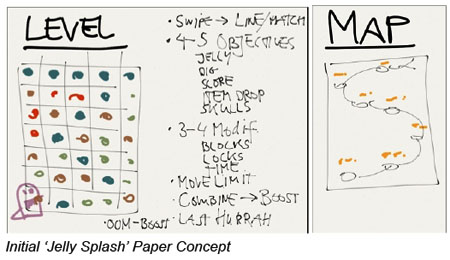 LEVEL
• SWIPE → LINE/MATCH
• 4-5 OBJECTIVES
JELLY
DIG
SCORE
ITEM DROP
SKULLS
• 3-4 MODIF.
BLOCKS
LOCKS
TIME
• MOVE LIMIT
• COMBINE → BOOST
• OOM-BOOST
• LAST HURRAH
MAP
Initial 'Jelly Splash' Paper Concept